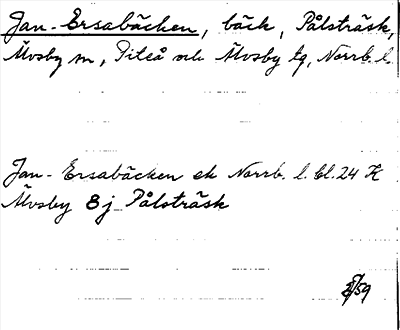 Jan-Ersabäcken, bäck, Pålsträsk,
Älvsby sn, Piteå och Älvsby tg, Norrb. l.
Jan-Ersabäcken ek Norrb. l. bl. 24 K
Älvsby 8 j Pålsträsk